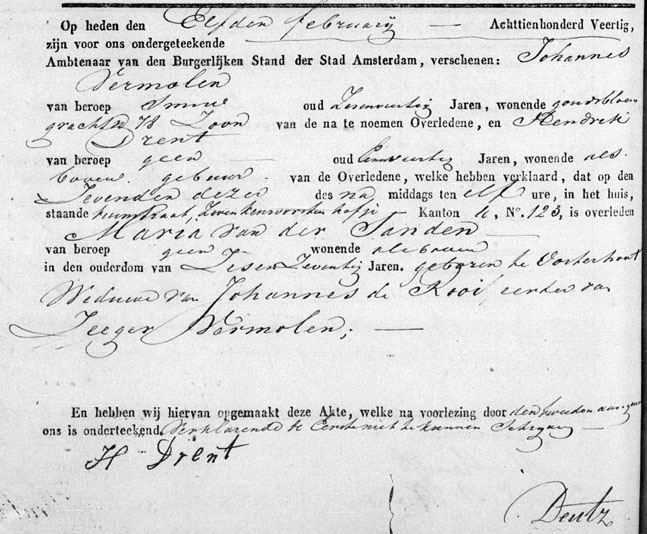 Op heden den Elfden february Achttienhonderd Veertig,
zijn voor ons ondergeteekende
Ambtenaar van den Burgerlijken Stand der Stad Amsterdam, verschenen: Johannes
Vermolen
van beroep Smid oud Zesenveertig Jaren, wonende goudsbloem
gracht N 78 Zoon van de na te noemen Overledene, en Hendrik
Drent
van beroep geen oud Jaren, wonende als
boven gebuur van de Overledene, welke hebben verklaard, dat op den
Zevenden dezer des na middags ten elf ure, in het huis,
staande hofje Kanton 4, No. 123, is overleden
Maria van der Sanden
van beroep geen wonende als boven
in den ouderdom van Zesen Zeventig Jaren. geboren te Oosterhout
Weduwe van Johannes de Rooi, eerder van
Zeeger Vermolen;
En hebben wij hiervan opgemaakt deze Akte, welke na voorlezing door den tweeden aangever
ons is onderteekend. Verklarende de Eerste niet te kunnen Schrijven
H Drent
Deutz